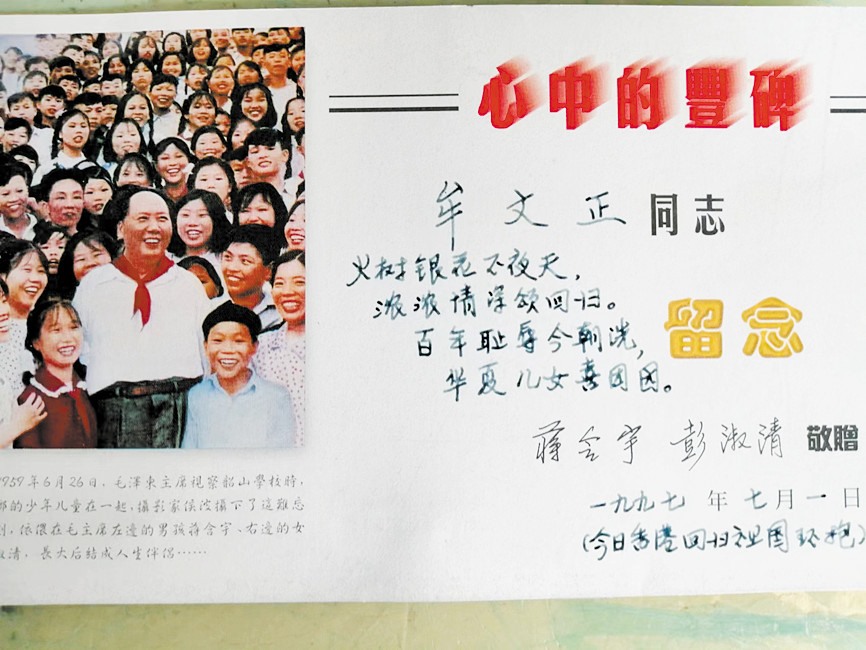 心中的豐碑
牟文正同志
火树银花不夜天，
浓浓情深颂回归。
百年耻辱今朝洗，
华夏儿女喜团圆。
留念
蒋含宇 彭淑清 敬贈
一九九七年七月一日
(今日香港回归祖国环抱)
1959年6月26日，毛澤東主席視察韶山學校時，
鄉的少年儿童在一起，攝影家侯波攝下了這難忘
刻，依偎在毛主席左邊的男孩蒋含宇、右邊的女
淑清，長大后結成人生伴侣……